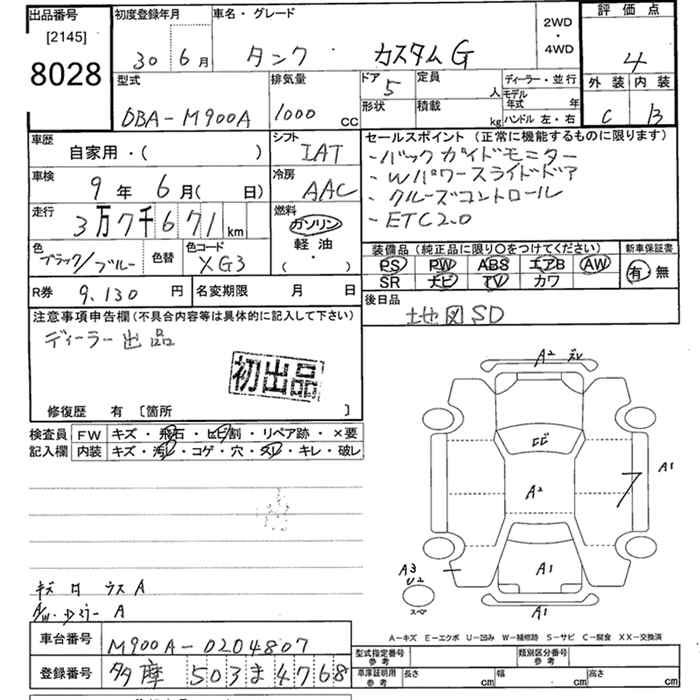 出品番号
[2145]
8028
初度登録年月
30 6月
車名・グレード
タンク カスタムG
2WD
・
4WD
評価点
4
外装 内装
C B
型式
DBA-M900A
排気量
1000 CC
ドア
5
形状
定員
人
積載
kg
ディーラー・並行
モデル
年式 年
ハンドル 左・右
車歴
自家用・( )
シフト
IAT
車検
9年 6月( 日)
冷房
AAC
走行
3万7千671 km
燃料
ガソリン
軽油
( ・ )
色
ブラック/ブルー
色替
色コード
XG3
R券
9,130 円
名変期限 月 日
セールスポイント (正常に機能するものに限ります)
-バックガイドモニター
-Wパワースライドドア
-クルーズコントロール
-ETC2.0
装備品 (純正品に限り○をつけてください)
PS PW ABS エアB AW
SR ナビ TV カワ
新車保証書
有・無
後日品
地図SD
注意事項申告欄(不具合内容等は具体的に記入して下さい)
ディーラー出品
初出品
修復歴 有 [箇所 ]
検査員
記入欄
FW キズ・飛石・ヒビ割・リペア跡・×要
内装 キズ・汚レ・コゲ・穴・スレ・キレ・破レ
A2
ヒビ
A2
A1
A1
A3
U2
スペア
キズ ウス A
A
A-キズ E-エクボ U-凹み W-補修跡 S-サビ C-腐食 XX-交換済
車台番号
M900A-0204807
登録番号
多摩 503 ま 4768
型式指定番号
参考
類別区分番号
参考
車庫証明用
参考
長さ cm
幅 cm
高さ cm